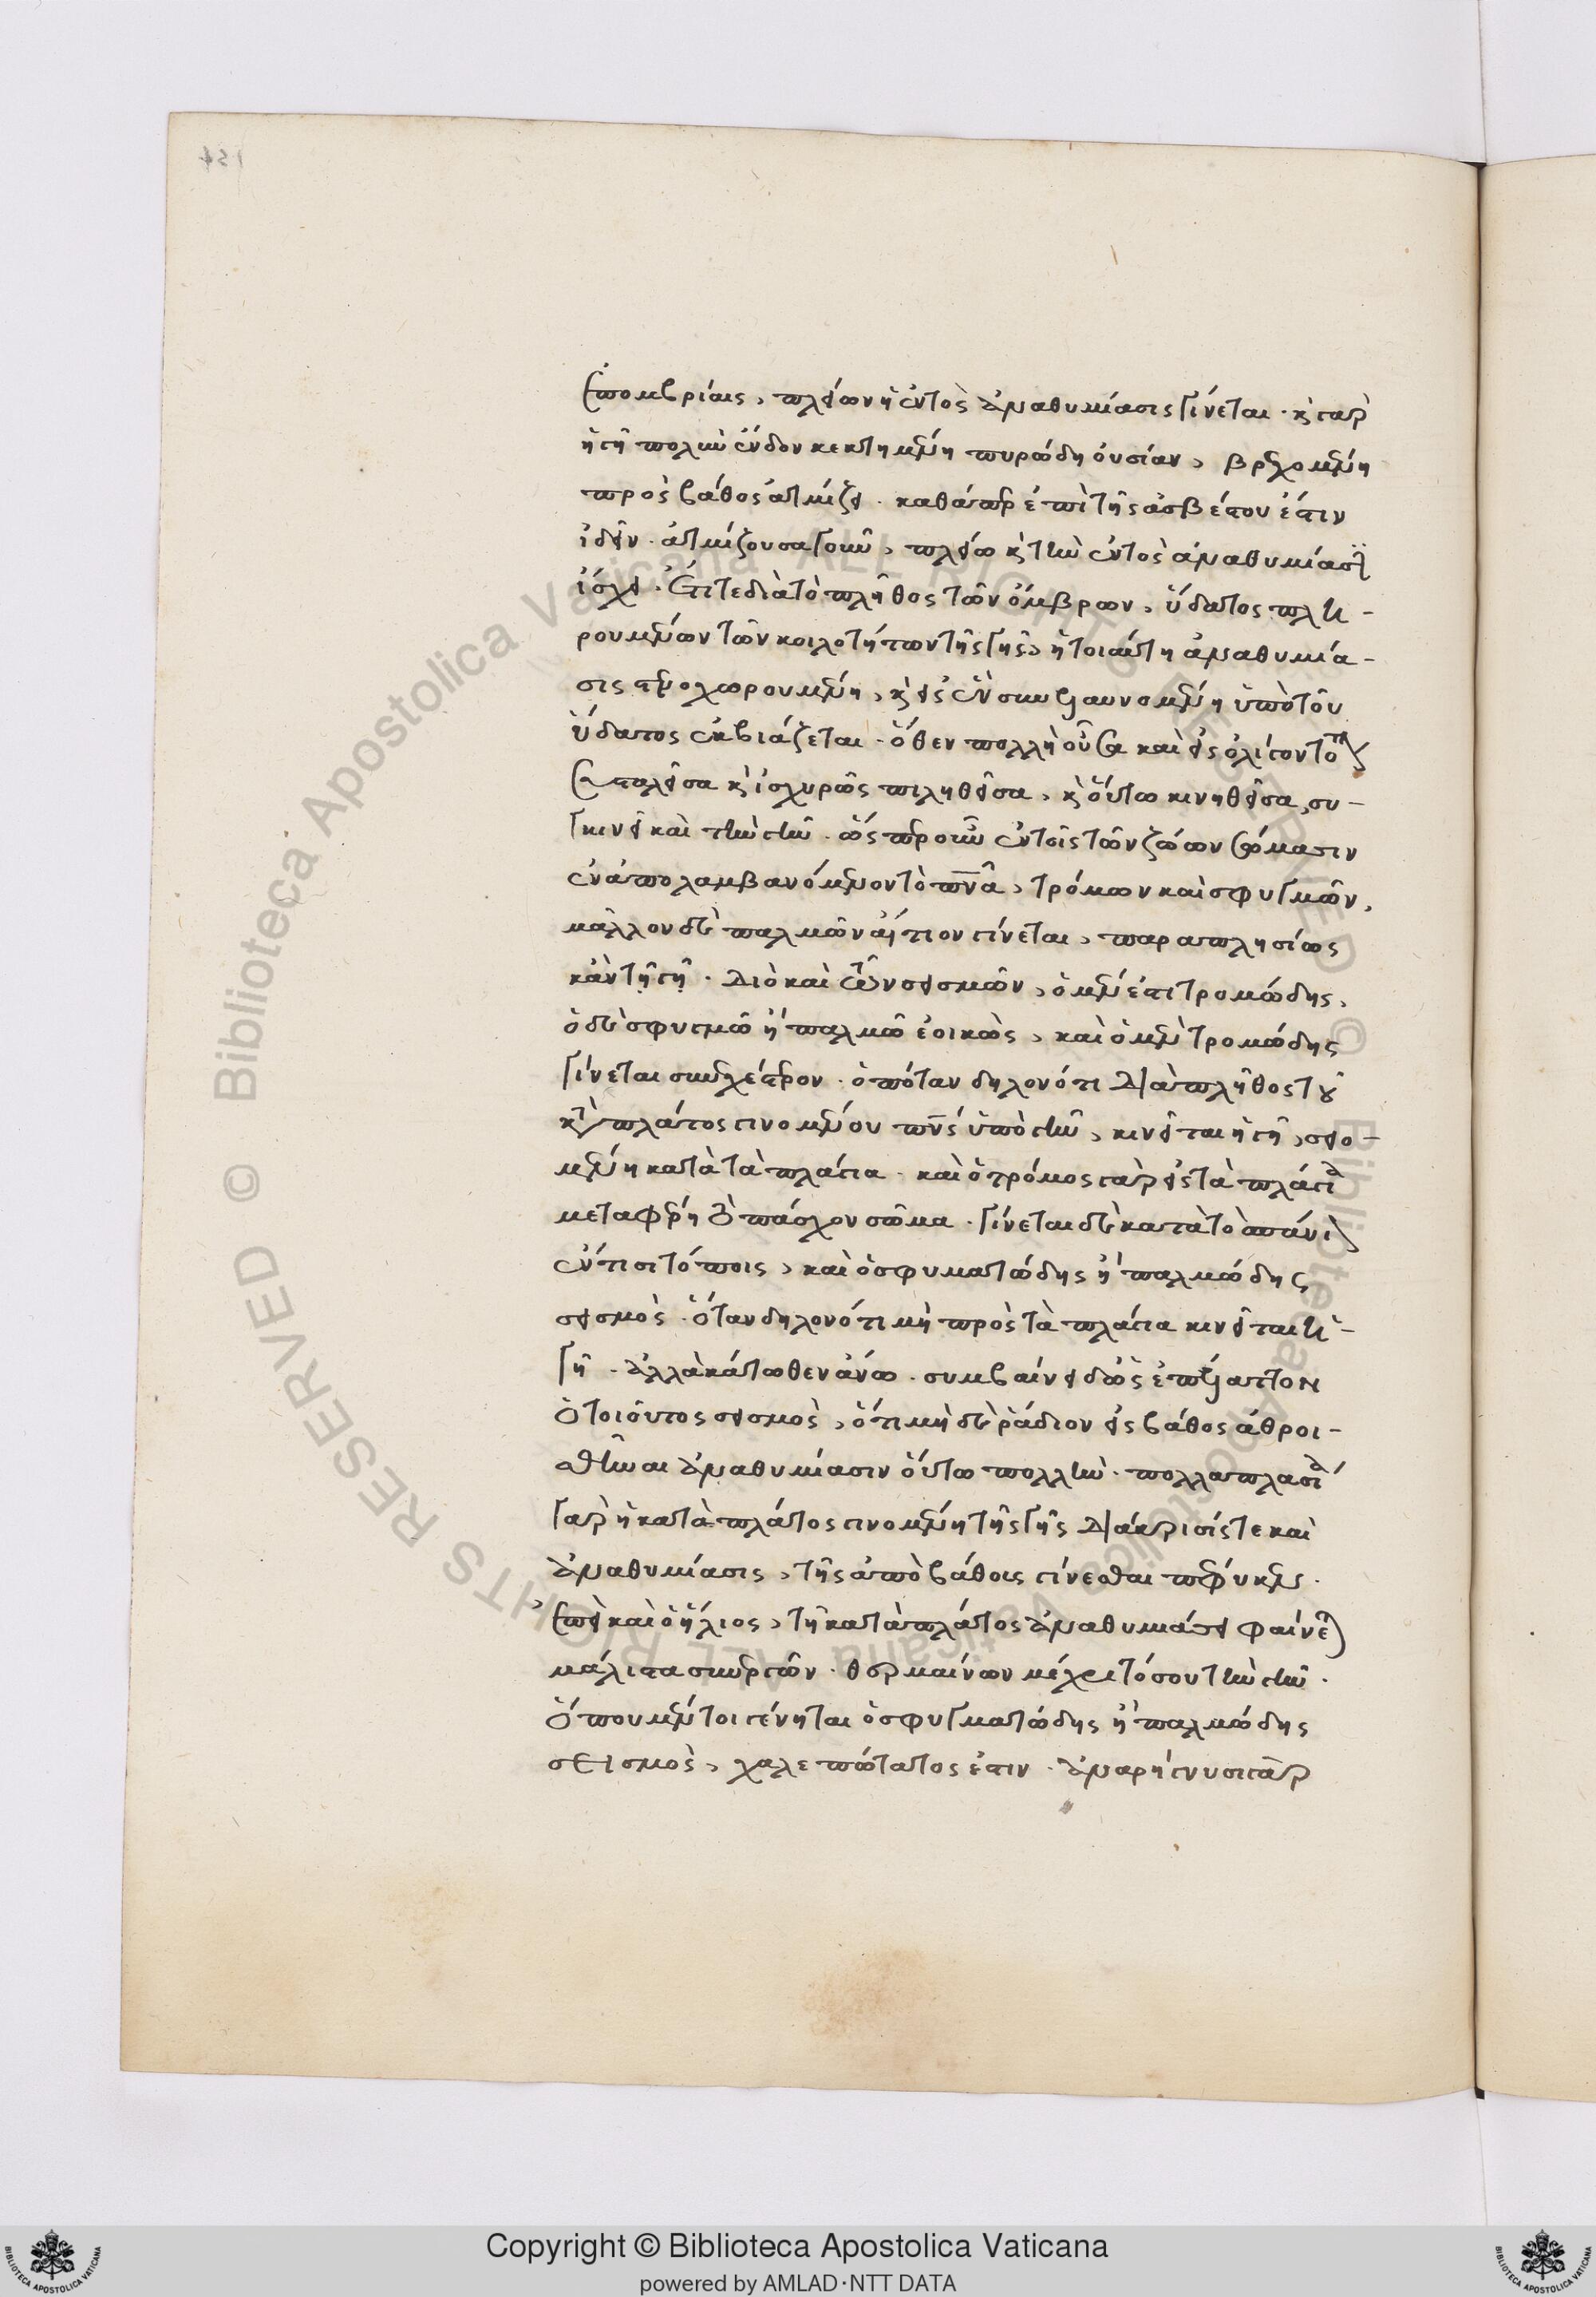 ἐπομβρίαις, πλείων ἡ ἐντὸς ἀναθυμίασις γίνεται. καὶ γὰρ
ἡ γῆ πολλὴν ἔνδον κεκτημένη πυρώδη οὐσίαν, βρεχομένη
πρὸς βάθος ἀτμίζει. καθάπερ ἐπὶ τῆς ἀσβέστου ἔστιν
ἰδεῖν. ἀτμίζουσα γοῦν, πλείω καὶ τὴν ἐντὸς ἀναθυμίασιν
ἴσχει. ἔτι τε διὰ τὸ πλῆθος τῶν ὄμβρων, ὕδατος πλη-
ρουμένων τῶν κοιλοτήτων τῆς γῆς, ἡ τοιαύτη ἀναθυμία-
σις στενοχωρουμένη, καὶ εἰς ἓν συνελαυνομένη ὑπὸ τοῦ
ὕδατος ἐκβιάζεται. ὅθεν πολλὴ οὖσα καὶ εἰς ὀλίγον τόπον
συσταλεῖσα καὶ ἰσχυρῶς πιληθεῖσα, καὶ οὕτω κινηθεῖσα, συ-
γκινεῖ καὶ τὴν γῆν. ὥσπερ οὖν ἐν τοῖς τῶν ζώων σώμασιν
ἐναπολαμβανόμενον τὸ πνεῦμα, τρόμων καὶ σφυγμῶν,
μᾶλλον δὲ παλμῶν αἴτιον γίνεται, παραπλησίως
κἀν τῇ γῇ. διὸ καὶ τῶν σεισμῶν, ὁ μέν ἐστι τρομώδης,
ὁ δὲ σφυγμῶ ἢ παλμῶ ἐοικὼς, καὶ ὁ μὲν τρομώδης
γίνεται συνεχέστερον. ὁπόταν δηλονότι διὰ πλῆθος τοῦ
κατὰ πλάτος γινομένου πνεύματος ὑπὸ γῆν, κινεῖται ἡ γῆ, σειο-
μένη κατὰ τὰ πλάγια. καὶ ὁ τρόμος γὰρ εἰς τὰ πλάγια
μεταφέρει τὸ πάσχον σῶμα. γίνεται δὲ κατὰ τὸ σπάνιον
ἔν τισι τόποις, καὶ ὁ σφυγματώδης ἢ παλμώδης
σεισμὸς. ὅταν δηλονότι μὴ πρὸς τὰ πλάγια κινεῖται ἡ
γῆ. ἀλλὰ κάτωθεν ἄνω. συμβαίνει δ' ὡς ἐπὶ τὸ ἔλαττον
ὁ τοιοῦτος σεισμὸς, ὅτι μὴ δὲ ῥάδιον εἰς βάθος ἀθροι-
σθῆναι ἀναθυμίασιν οὕτω πολλὴν. πολλαπλασία
γὰρ ἡ κατὰ πλάτος γινομένη τῆς γῆς διάκρισίς τε καὶ
ἀναθυμίασις, τῆς ἀπὸ βάθους γίνεσθαι πέφυκεν.
ἐπεὶ καὶ ὁ ἥλιος, τῇ κατὰ πλάτος ἀναθυμιάσει φαίνεται
μάλιστα συνεργῶν. θερμαίνων μέχρι τόσου τὴν γῆν.
ὅπου μέντοι γένηται ὁ σφυγματώδης ἢ παλμώδης
σεισμὸς, χαλεπώτατος ἐστιν. ἀναρήγνυσι γὰρ